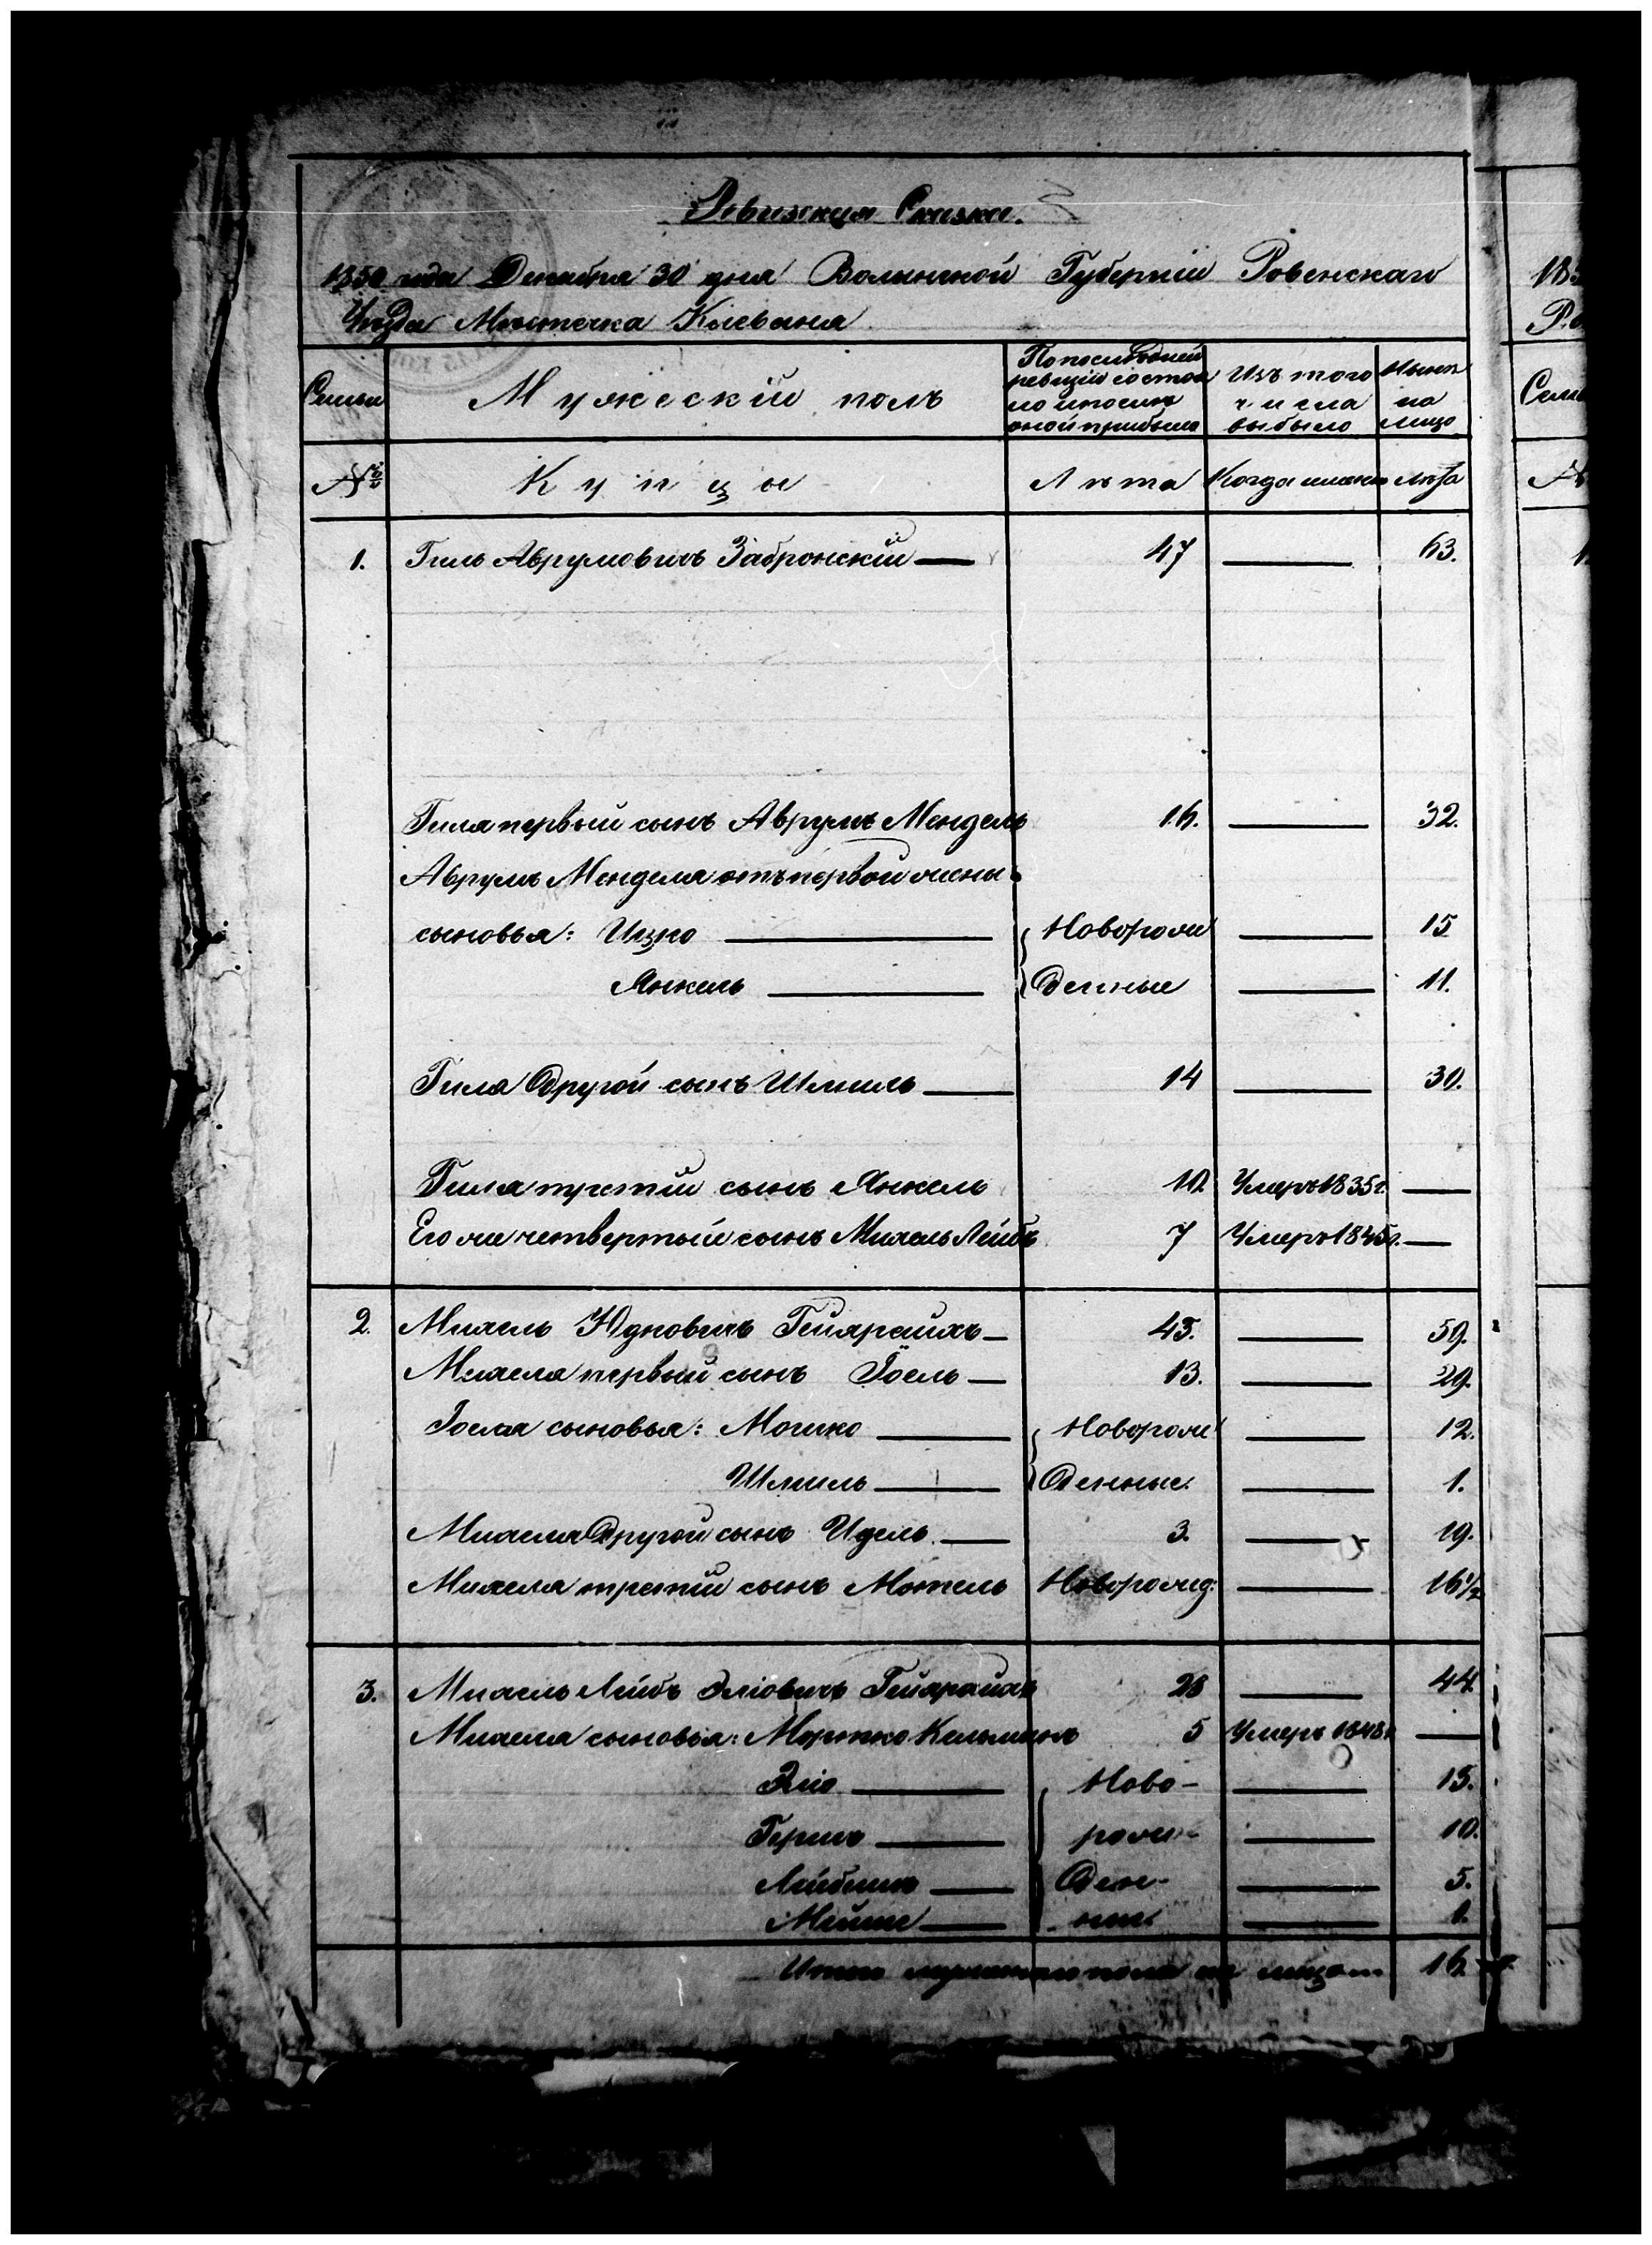 Ревизская Сказка.
1850 года Декабря 30 дня Волынской Губерніи Ровенскаго
Уѣзда Мѣстечка Клевана
Семьи
Мужескій полъ
По послѣдней ревизіи состоя ло и послѣ оной прибыло
Изъ того числа выбыло
Нынѣ на лицо
№
Купцы
Лѣта
Когда именно
Лѣта
1. Гиль Аврумовичъ Забронскій 47 63.
Гиля первый сынъ Аврумъ Мендель 16. 32.
Аврумъ Менделя отъ первой жены
сыновья: ИцкоНоворож 15
Янкель денные 11.
Гиля другой сынъ Шмиль 14 30.
Гиля третій сынъ Янкель 10 Умеръ 1835 г.
Его же четвертый сынъ Михель Лейбъ 7 Умеръ 1845 г.
2. Михель Юдковичъ Гейярайхъ 43. 59.
Михеля первый сынъ Іоель 13. 29.
Іоеля сыновья: Мошко Новорож 12.
Шмиль денные. 1.
Михеля другой сынъ Идель 3. 19.
Михеля третій сынъ Мотель Новорожд: 16 1/2
3. Михель Лейбъ Эліовичъ Гейярайхъ 28 44.
Михеля сыновья: Мортко Кельманъ 5 Умеръ 1848 г.
Эліо Ново- 13.
Гершъ рож- 10.
Лейбишъ ден- 5.
Мейше ные. 1.
Итого мужескаго пола на лицо 16
18
Р.
Семь
№
1